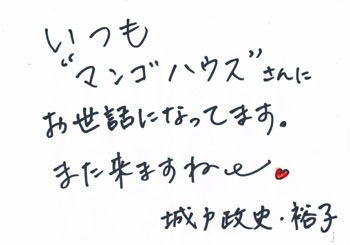 いつも
“マンゴハウス”さんに
お世話になってます。
また来ますね〜
城戸政史・裕子